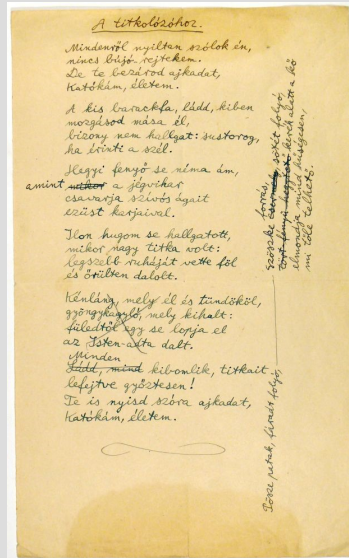 A titkolózóhoz.
Mindenről nyiltan szólok én,
nincs bújó rejtekem.
De te bezárod ajkadat,
Katókám, életem.
A kis barackfa, ládd, kiben
mozgásod mása él,
bizony nem hallgat: sustorog,
ha érinti a szél.
Hegyi fenyő se néma ám,
amint mikor a jégvihar
csavarja szívós ágait
ezüst karjaival.
Ilon hugom se hallgatott,
mikor nagy titka volt:
legszebb ruháját vette föl
és őrülten dalolt.
Kénláng, mely él és tündököl,
gyöngykagyló, mely kihalt:
füledtől így se lopja el
az Isten-adta dalt.
Minden
Ládd, mind kibomlik, titkait
lefejtve győztesen!
Te is nyisd szóra ajkadat,
Katókám, életem.
Szöszke forrás,
sötét folyó,
kerék alatt a kő
elmondja mind hűségesen,
mi tőle telhető.
patak, fáradt folyó,